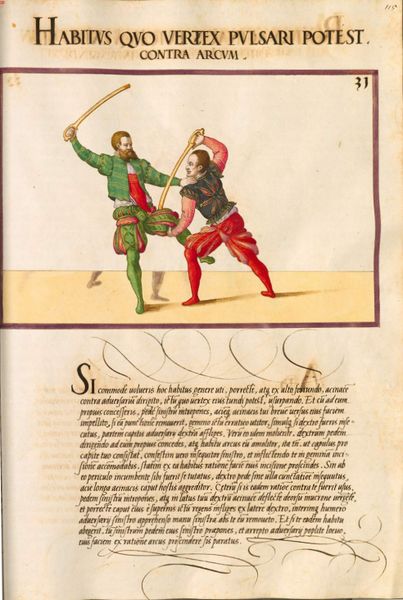 115
HABITVS QVO VERTEX PVLSARI POTEST.
CONTRA ARCVM.
31
SI commode volueris hoc habitus genere uti, porrecte, atq ex alto feriundo, acinace
contra adversariū dirigito, is tu quo vertex eius tundi potest, usurpando. Et cū ad eum
propius concesseris, pede sinistro intrepones, acieq acinacis tui brevis versus eius faciem
impellito, si eū punctione removerit, gemino ictu cruratio utitor, simulq si dextro fueris inse
cutus, partem capitis adversarii dextrā affliges. Verū in idem molierit, dextrum pedem
dirigendo ad eum propius concedes, atq habitu arcus eū amolitor, ita tn̄ ut capulus pro
capite tuo consistat, confestim vero insequitor sinistro, et inflectendo te in geminā inci-
sionē accomodabis. statim ex ea habitus ratione faciē eius incisione proscindes. Sin ab
eo periculo incumbente sibi fuerit se tutatus, dextro pede sine ulla cunctatione insequutus,
acie longa acinacis caput hostis aggreditor. Ceterū si is eadem ratione contra te fuerit usus,
pedem sinistrū intropones, atq in latus tuū dextrū acinacē deflecte deorsū mucrone vergente,
et porrecte caput eius e supernis ictū regens infliges ex latere dextro, interimq humero
adversarii sinistro apprehenso manu sinistra abs te eū removeto. Et si te eadem habitu
abegerit, tū sinistrum pedem eius sinistro praepones, et arrepto adversarii poplite laevo,
eius faciem ex ratione arcus proscindere sis paratus.